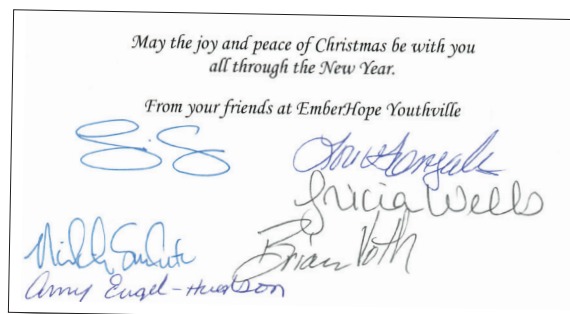 May the joy and peace of Christmas be with you
all through the New Year.
From your friends at EmberHope Youthville
Tricia Wells
Brian Voth
Amy Engel-Hudson